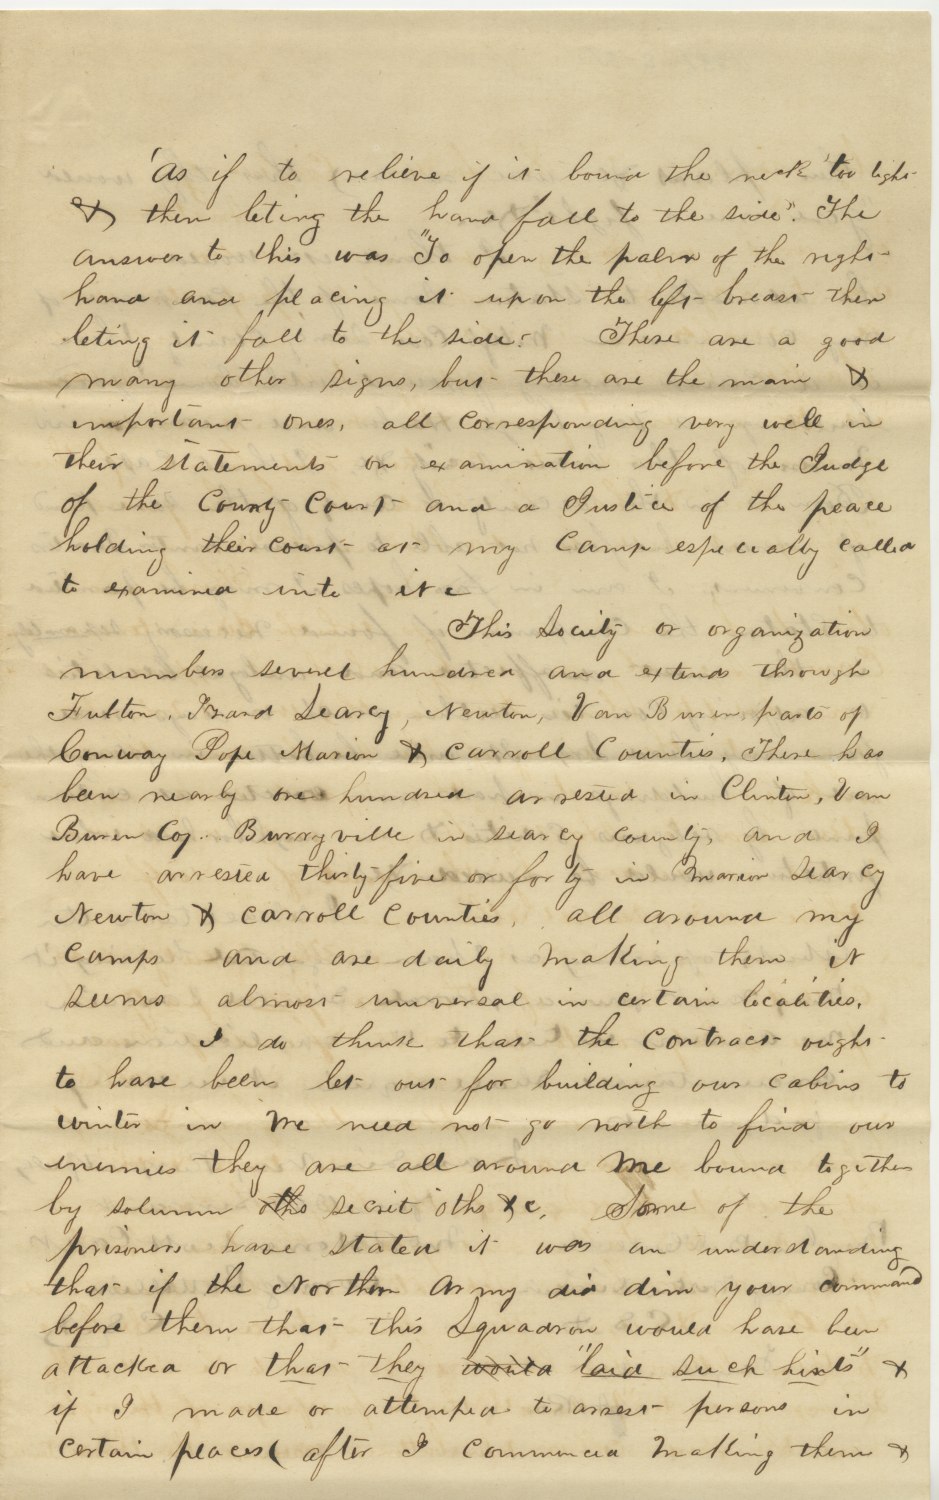 'As if to relieve if it bound the neck too tight
& then leting the hand fall to the side". The
answer to this was "To open the palm of the right
hand and placing it upon the left breast then
leting it fall to the side." There are a good
many other signs, but these are the main &
important ones, all corresponding very well in
their statements on examination before the Judge
of the County Court and a Justice of the peace
holding their court at my Camp especially called
to examined into it
This Society or organization
numbers severel hundred and extends through
Fulton, Izard Searcy, Newton, Van Buren, parts of
Conway Pope Marion & Carroll Counties. There has
been nearly one hundred arrested in Clinton, Van
Buren Coy. Burryville in Searcy County, and I
have arrested thirty five or forty in Marion Searcy
Newton & Carroll Counties, all around my
camps and are daily making them it
seems almost universal in certain localities.
I do think that the Contract ought
to have been let out for building our cabins to
winter in We need not go north to find our
enemies they are all around me bound together
by solumn oths secrit oths &c. Some of the
prisoners have stated it was an understanding
that if the Northern army did driv your command
before them that this Squadron would have been
attacked or that they would "laid such hints" &
if I made or attemped to arrest persons in
certain places( after I commenced making them &